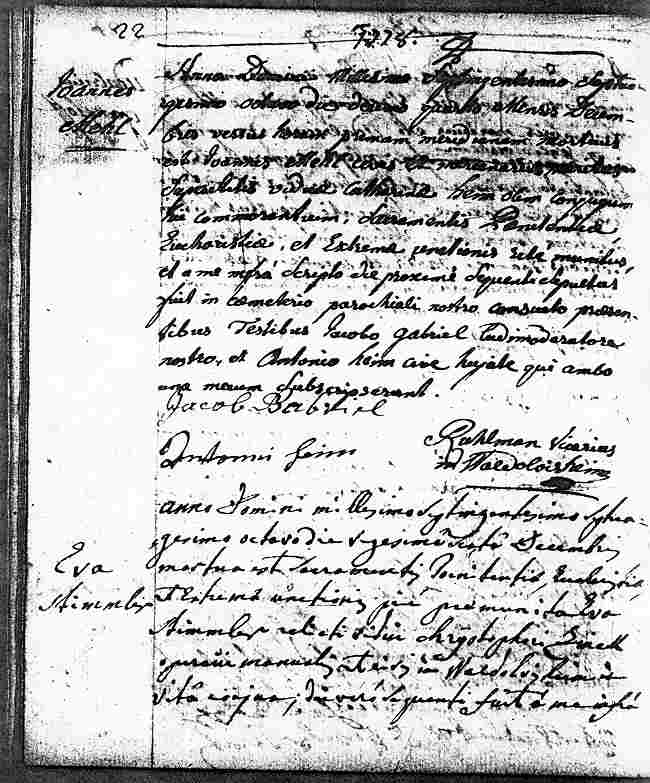 22
1778.
Joannes
Mehl
Anno Domini Millesimo Septingentesimo Septua-
gesimo octavo die decima quarta Mensis Decem-
bris versus horam primam meridianam mortuus
est Joannes Mehl civis et
viduae Catharina Heim olim conjugum
hic commorantium, Sacramentis Poenitentiae
Eucharistiae, et Extremae unctionis rite munitus,
et a me infrà Scripto die proximè Sequenti Sepultus
fuit in Coemeterio parochiali nostro consueto praesen-
tibus Testibus Jacobo Gabriel Ludimoderatore
nostro, et Antonio heim cive hujate qui ambo
una mecum Subscripserunt.
Jacob Gabriel
Antoni heim
Rahlman Vicarius
in Waldolvisheim
Eva
Stimmler
anno Domini millesimo Septingentesimo Septua-
gesimo octavo die vigesima Decembris
mortua est Sacramentis Poenitentiae Eucharistiae
et Extremae unctionis piè praemunita Eva
Stimmler relicti vidui Chrystophori
operarii manualis in Waldolvisheim
vitâ die verò Sequenti fuit à me infrà